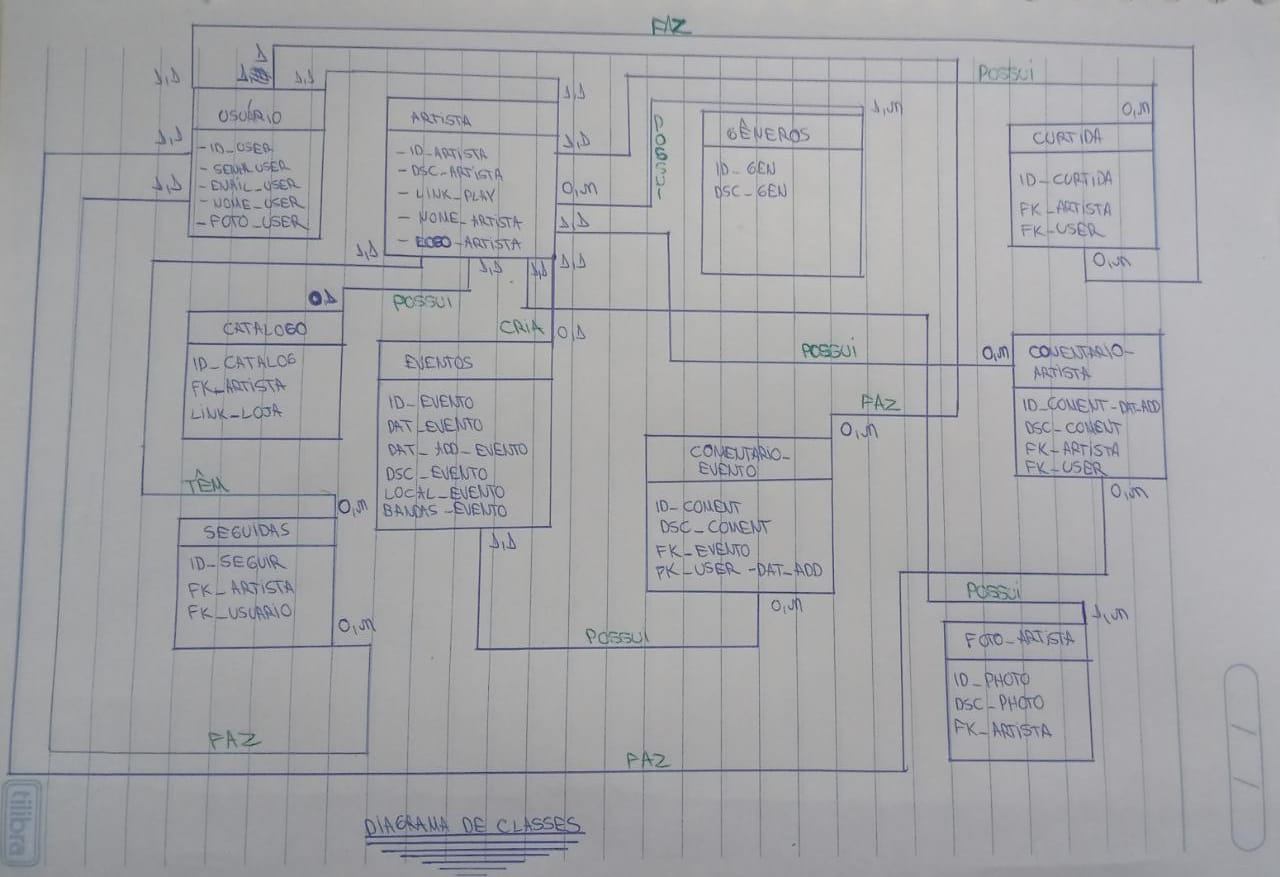 FAZ
1
1,1
1,1
1,1
1,1
POSSUI
1,n
0,n
USUÁRIO
- ID_USER
- SENHA USER
- EMAIL_USER
- NOME_USER
- FOTO_USER
1,1
1,1
ARTISTA
- ID_ARTISTA
- DSC_ARTISTA
- LINK_PLAY
- NOME_ARTISTA
-ARTISTA
1,1
0,n
1,1
1,1
POSSUI
GÊNEROS
ID_GEN
DSC_GEN
CURTIDA
ID_CURTIDA
FK_ARTISTA
FK_USER
0,n
1,1
1,1
1,1
POSSUI
01
CRIA
0,1
CATALOGO
ID_CATALOG
FK_ARTISTA
LINK_LOJA
EVENTOS
ID_EVENTO
DAT_EVENTO
DAT_ADD_EVENTO
DSC_EVENTO
LOCAL_EVENTO
BANDAS_EVENTO
1,1
POSSUI
0,n
COMENTARIO-
ARTISTA
ID_COMENT-DAT-ADD
DSC_COMENT
FK_ARTISTA
FK_USER
0,n
FAZ
0,n
COMENTARIO_
EVENTO
ID_COMENT
DSC_COMENT
FK_EVENTO
FK_USER -DAT_ADD
0,n
POSSUI
TÊM
0,n
SEGUIDAS
ID_SEGUIR
FK_ARTISTA
FK_USUARIO
0,n
POSSUI
1,n
FOTO_ARTISTA
ID_PHOTO
DSC_PHOTO
FK_ARTISTA
FAZ
FAZ
DIAGRAMA DE CLASSES
tilibra
/ /